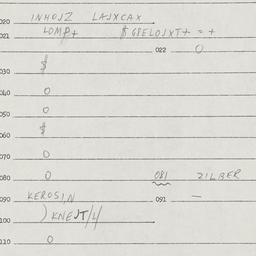 020 INHOJZ LAJXCAX
021 LOMP+ $GBELOJXT+ = +
022 0
030 $
040 0
050 0
060 $
070 0
080 0 081 ZILBER
090 KEROSIN 091 —
100 ) KNEJT/4/
110 0